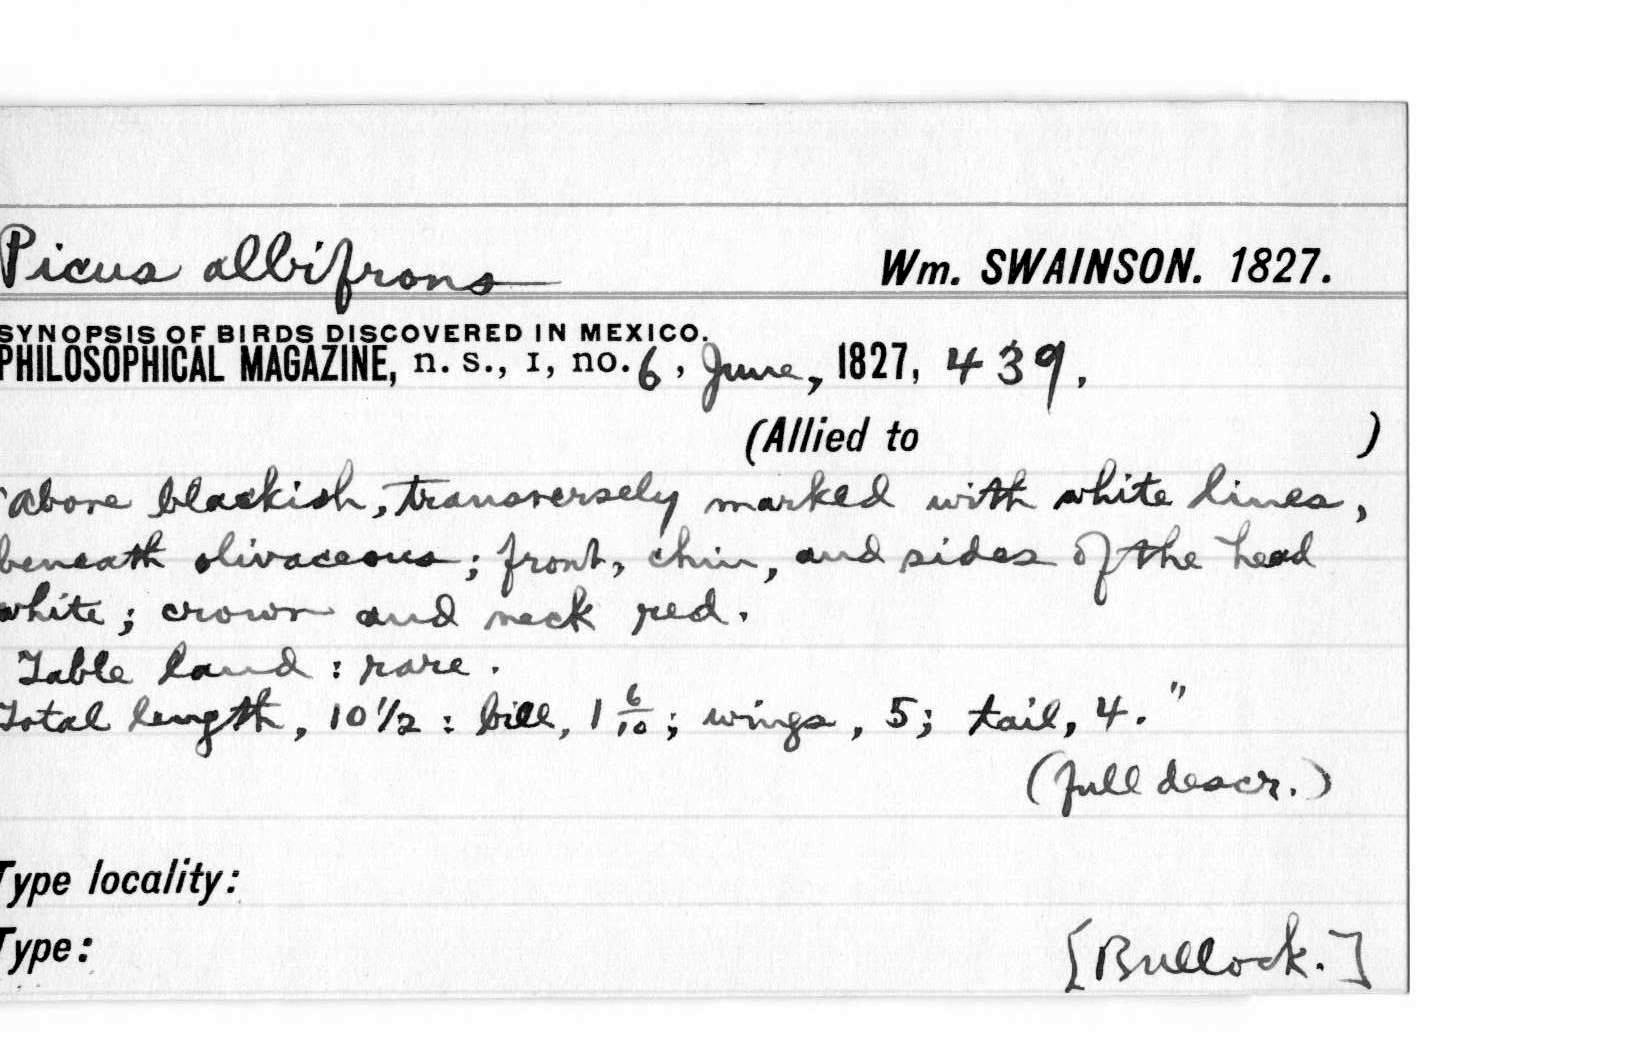 Picus albifrons Wm. SWAINSON. 1827.
SYNOPSIS OF BIRDS DISCOVERED IN MEXICO.
PHILOSOPHICAL MAGAZINE, n. s., I, no. 6, June, 1827, 439.
(Allied to )
"Above blackish, transversely marked with white lines,
beneath olivaceous; front, chin, and sides of the head
white; crown and neck red.
Table land : rare.
Total length, 10 1/2 : bill, 1 6/10; wings, 5; tail, 4."
(full descr.)
Type locality:
Type: [Bullock.]